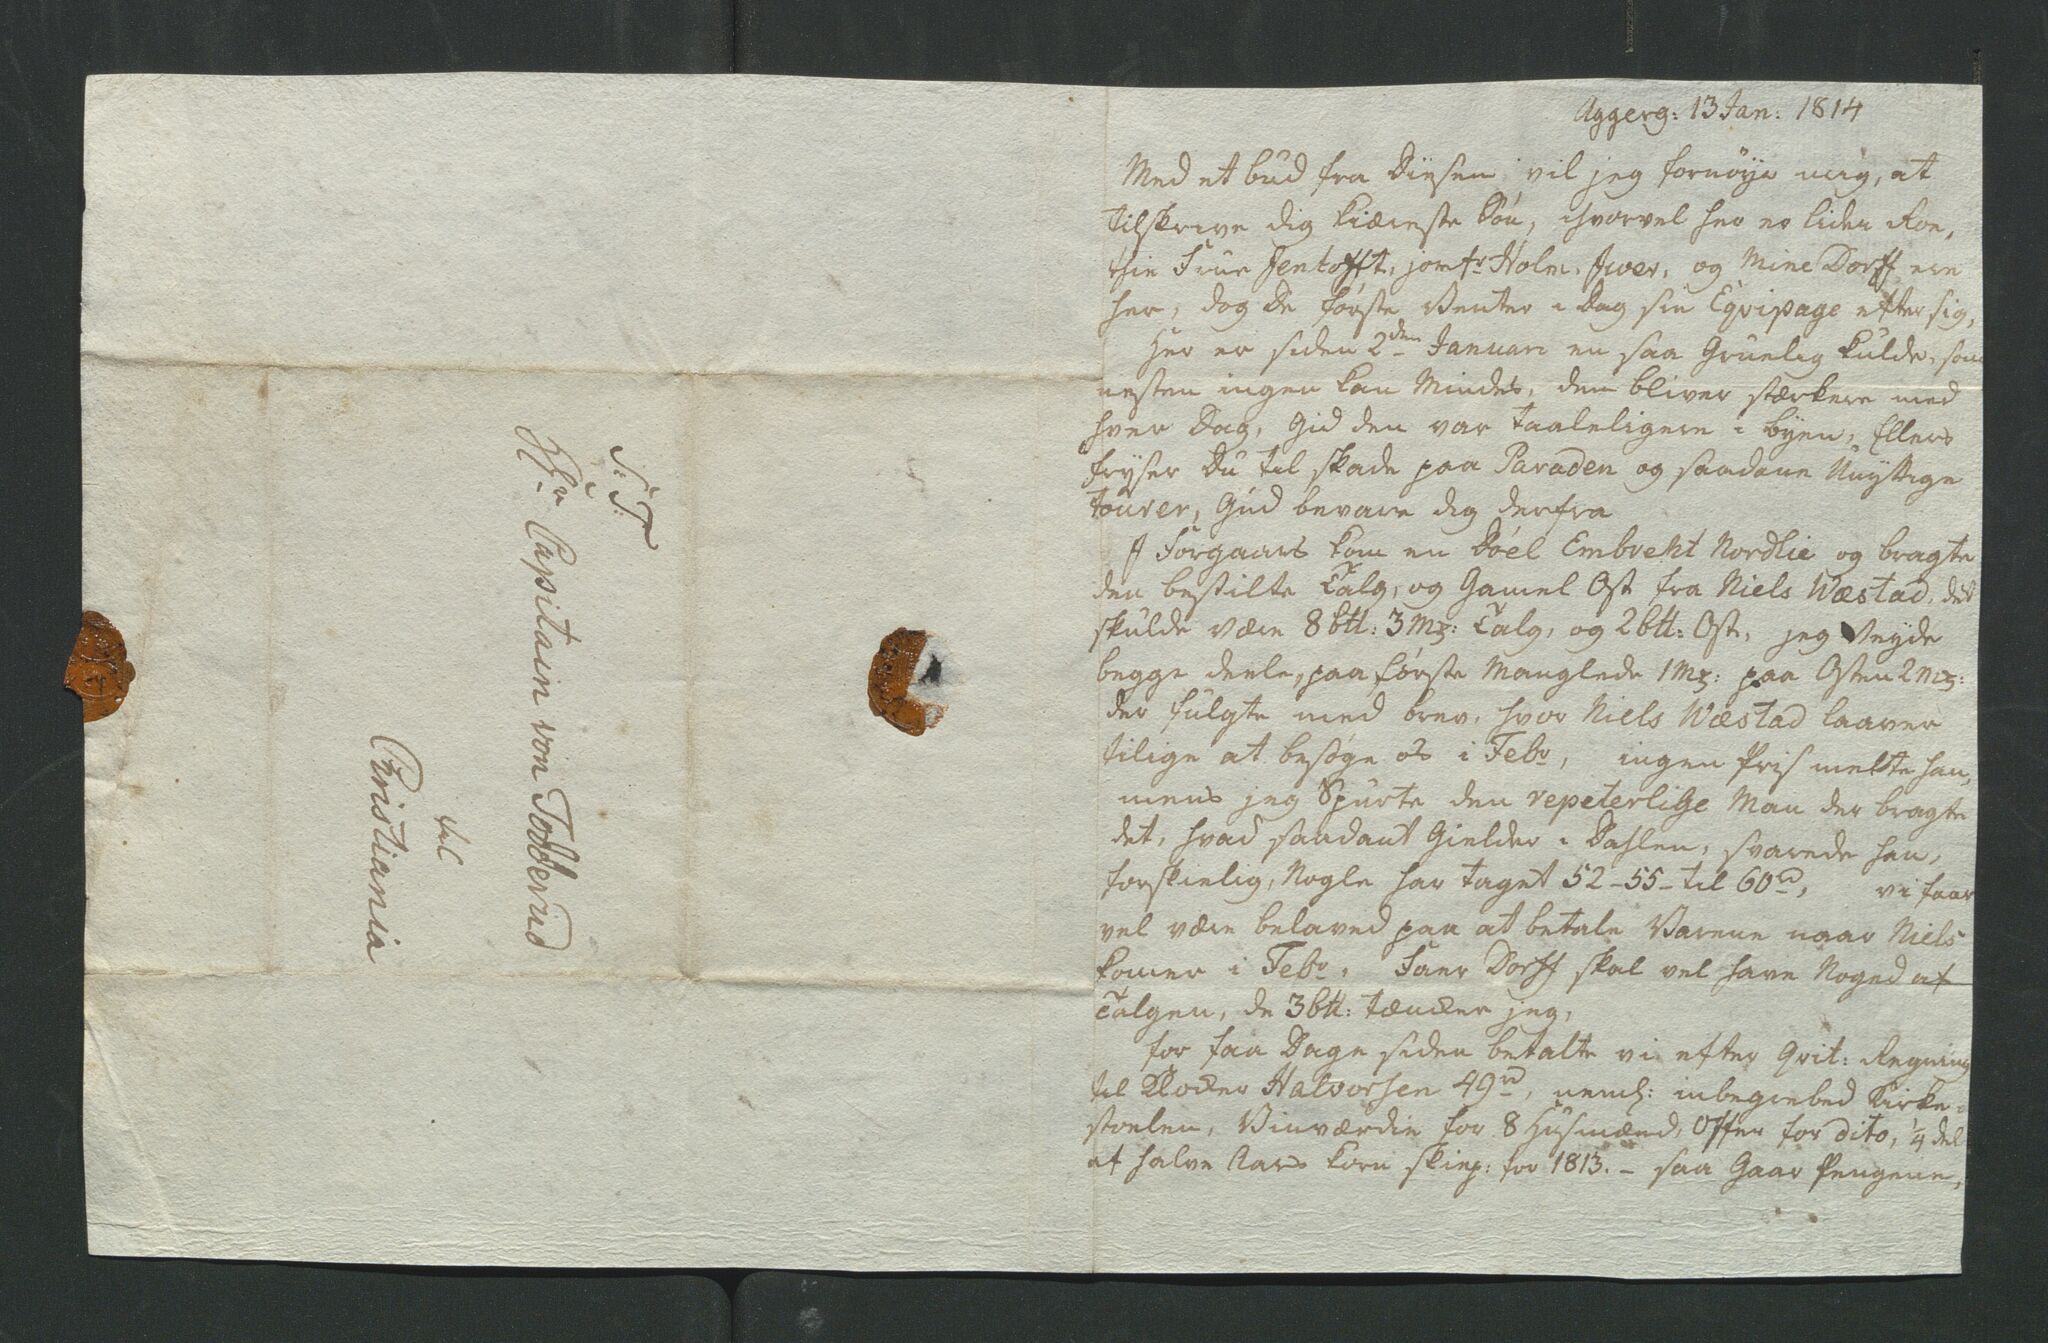 S: T:
Hr Capitain von Todderud
til
Christiania
Aggerg: 13 Jan: 1814
Med et bud fra Diesen vil jeg fornøye mig, at
tilskrive dig kiæreste Søn, ihvorvel her er liden Roe,
thie Frue Jentofft, jomfr Holm, Iver, og Mine Dorff ere
her, dog de første Venter i Dag sin Eqvipage efter sig,
Her er siden 2den Januari en saa Gruelig kulde, som
nesten ingen kan Mindes, den bliver stærkere med
hver Dag, Gid den var taaleligere i byen, Ellers
fryser Du til skade paa Paraden og saadane Unyttige
tourer, Gud bevare dig derfra
I Forgaars kom en Døel Embreht Nordlie og bragte
den bestilte Talg, og Gamel Ost fra Niels Wæstad, det
skulde være 8 btt: 3 Mk: Talg, og 2 btt: Ost, jeg Veyde
begge deele, paa første Manglede 1 Mk: paa Osten 2 Mk:
der fulgte med brev, hvor Niels Wæstad laaver
tilige at besøge os i Febr, ingen Pris melte han,
mens jeg Spurte den repeterlige Man der bragte
det, hvad saadant Gielder i Dahlen, svarede han,
forskielig, Nogle har taget 52 - 55 - til 60 rd, vi faar
vel være belaved paa at betale Varene naar Niels
komer i Febr, Faer Dorff skal vel have Noged af
Talgen, de 3 btt: tæncker jeg,
for faa Dage siden betalte vi efter Qvit: Regning
til Klocker Halvorsen 49 rd, neml: inbegrebed Kirke-
stoelen, Vinværdie for 8 Husmænd, Offer for dito, 1/4 del
af halve Aars korn skiep: for 1813. - saa Gaar Pengene,